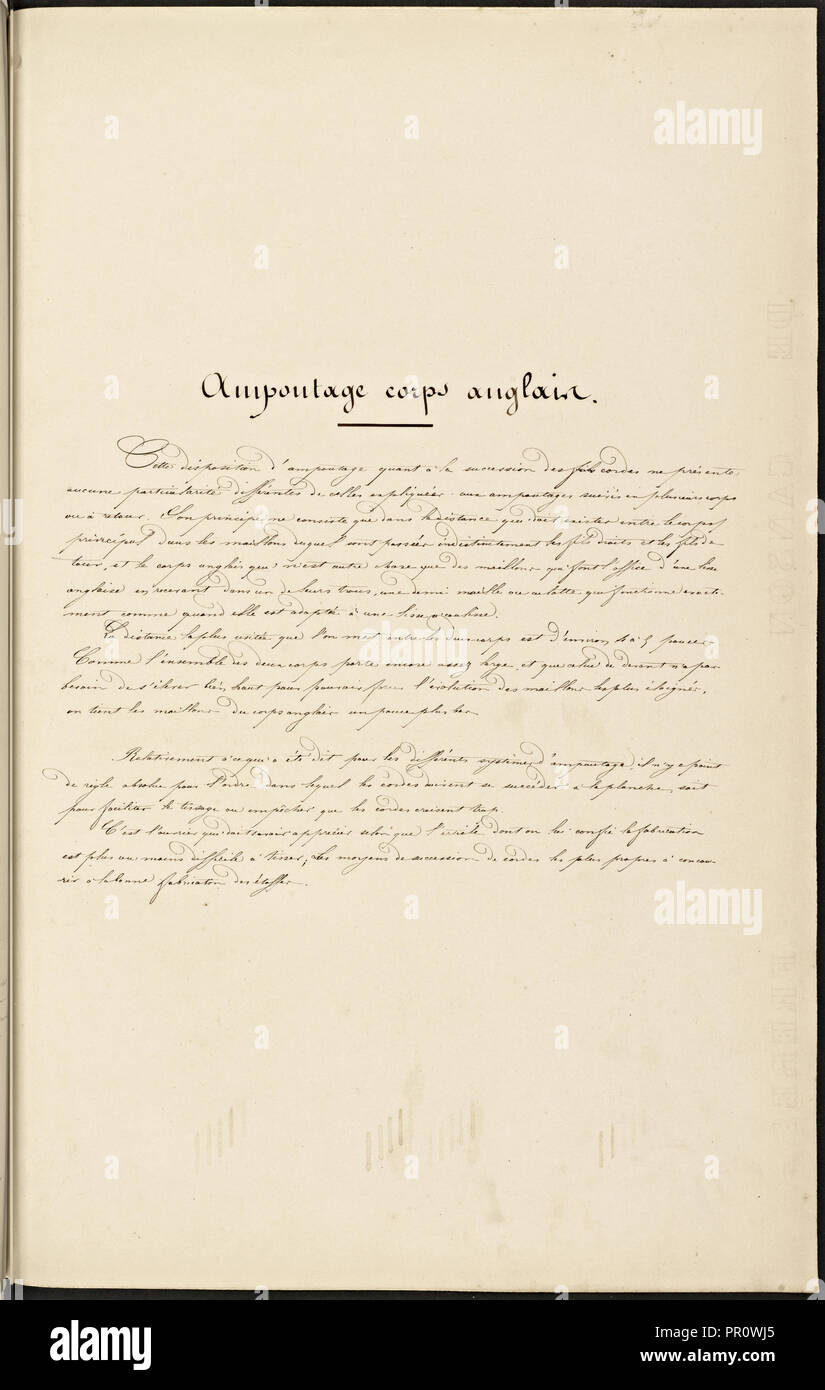 Ampoutage corps anglais.
Cette disposition d'ampoutage quant à la succession des fils cordes ne présente
aucune particularité différentes de celles expliquées aux ampoutages suivis en plusieurs corps
ou à retour. Son principe ne consiste que dans la distance qui doit exister entre le corps
principal dans les maillons duquel sont passés indistinctement les fils droits et les fils de
tour, et le corps anglais qui n'est autre chose que des maillons qui font l'office d'une lisse
anglaise en recevant dans un de leurs trous, une demi maille ou culotte qui fonctionne exacte-
ment comme quand elle est adaptée à une lisse
La distance la plus usitée que l'on met entre les deux corps est d'environ 4 à 5 pouces
Comme l'ensemble des deux corps porte encore assez large, et que celui de devant n'a pas
besoin de s'élever bien haut pour pouvoir faire l'évolution des maillons les plus éloignés,
on tient les maillons du corps anglais un pouce plus bas
Relativement à ce qui a été dit pour les différents systèmes d'ampoutage, il n'y a point
de règle absolue pour l'ordre dans lequel les cordes doivent se succéder à la planche, soit
pour faciliter le tissage ou empêcher que les cordes croisent trop.
C'est l'ouvrier qui doit savoir apprécier selon que l'étoffe dont on lui confie la fabrication
est plus ou moins difficile à tisser, les moyens de succession de cordes les plus propres à concou-
rir à la bonne fabrication des étoffes.
alamy
a
alamy
Image ID: PR0WJ5
www.alamy.com